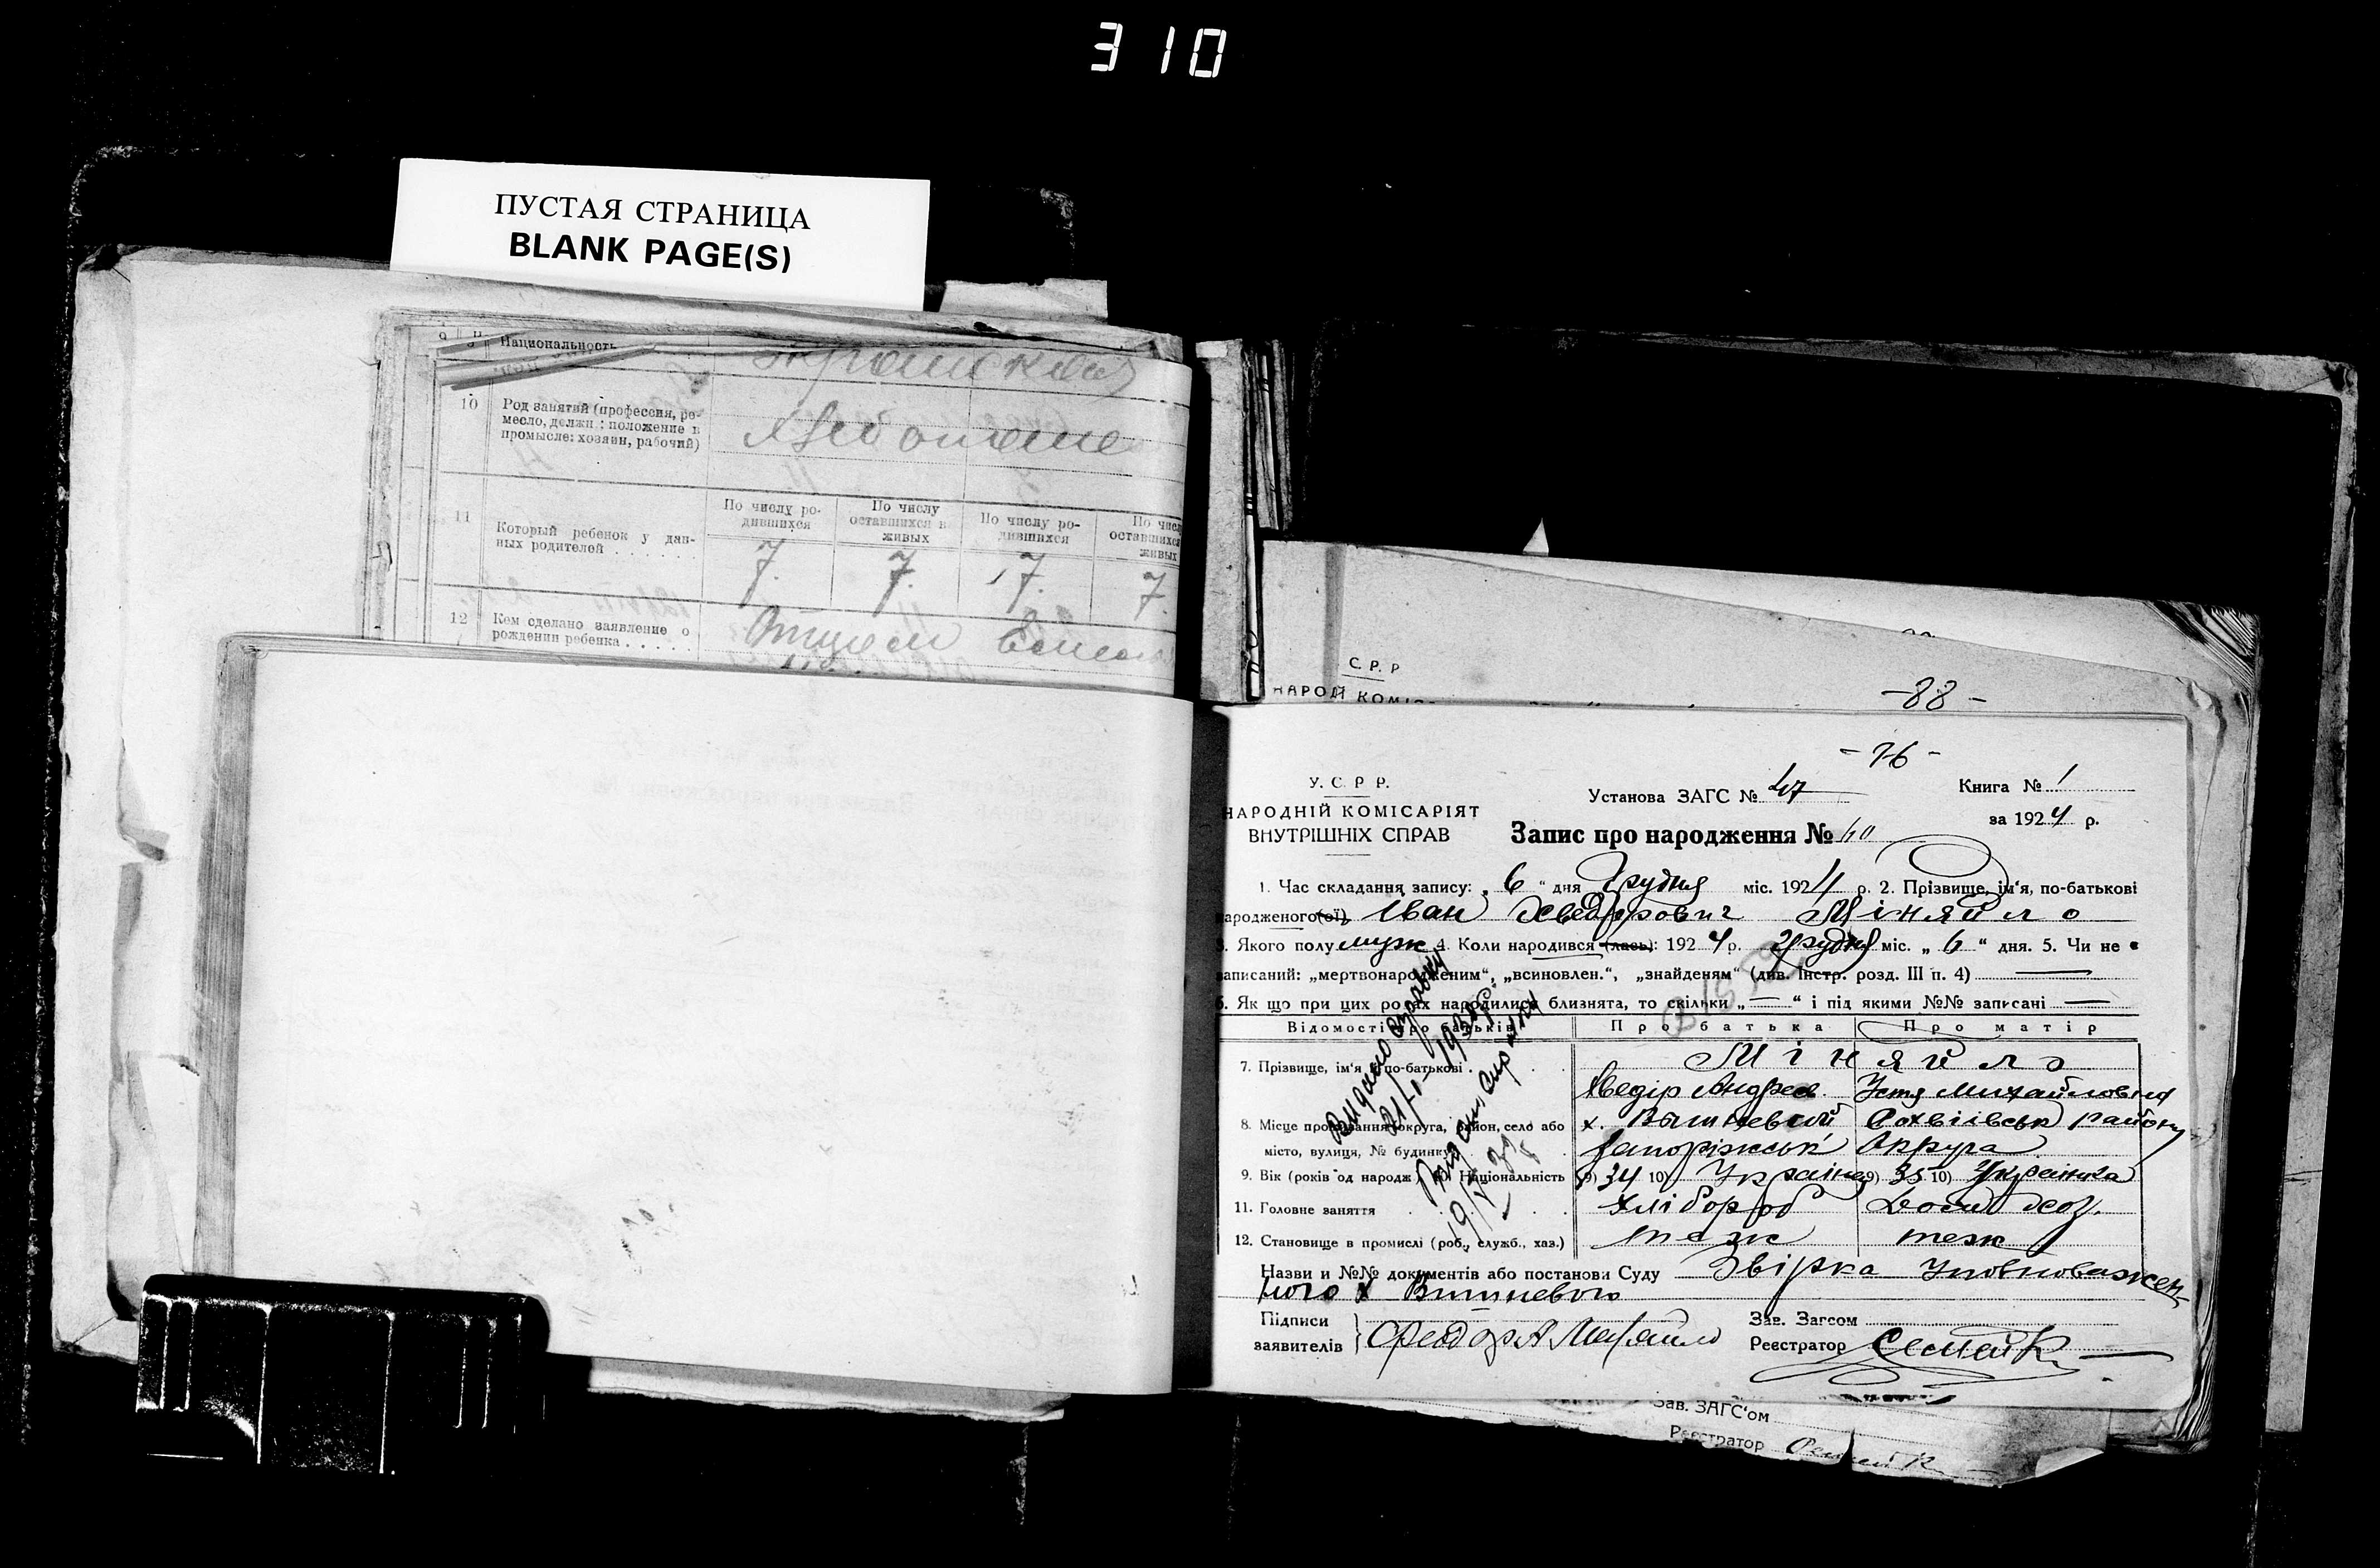 310
ПУСТАЯ СТРАНИЦА
BLANK PAGE(S)
Национальность
10 Род занятий (профессия, ре-
месло, должн.; положение в
промысле: хозяин, рабочий)
11 Который ребенок у дан-
ных родителей . . . . . .
По числу ро-
дившихся
По числу
оставшихся в
живых
По числу ро-
дившихся
По числ
оставшихся
живых
7. 7. 7. 7.
12 Кем сделано заявление о
рождении ребенка . . . . .
Отцем
С. Р. Р
НАРОД КОМІС
-88-
-76-
У. С. Р. Р.
НАРОДНІЙ КОМІСАРІЯТ
ВНУТРІШНІХ СПРАВ
Установа ЗАГС № 47
Книга № 1
за 1924 р.
Запис про народження №
1. Час складання запису: „ 6 “ дня Грудня міс. 1924 р. 2. Прізвище, ім'я, по-батькові
народженого(ої) Іван Міняйло
3. Якого полу муж 4. Коли народився (лась): 1924 р. Грудня міс. „ 6 “ дня. 5. Чи не є
записаний: „мертвонародженим“, „всиновлен.“, „знайденям“ (див. Інстр. розд. III п. 4) —
6. Як що при цих родах народилися близнята, то скільки „—“ і під якими №№ записані —
Відомості про батьків Про батька Про матір
7. Прізвище, ім'я й по-батькові . Міняйло
Хведір Андрев. Устя Михайловна
8. Місце проживання: округа, район, село або х. Вышневый район
місто, вулиця, № будинку Запоріжськ Округа
9. Вік (років од народж.) 10. Національність 9) 34 10) Українец 9) 35 10) Українка
11. Головне заняття Хлібороб
12. Становище в промислі (роб., служб., хаз.) теж теж
Назви и №№ документів або постанови Суду Звірка Уповноважен-
ного х Вишневого
Підписи
заявителів Феодор А Миняйло
Зав. Загсом
Реєстратор
Видано
Зав. ЗАГС'ом
Реєстратор